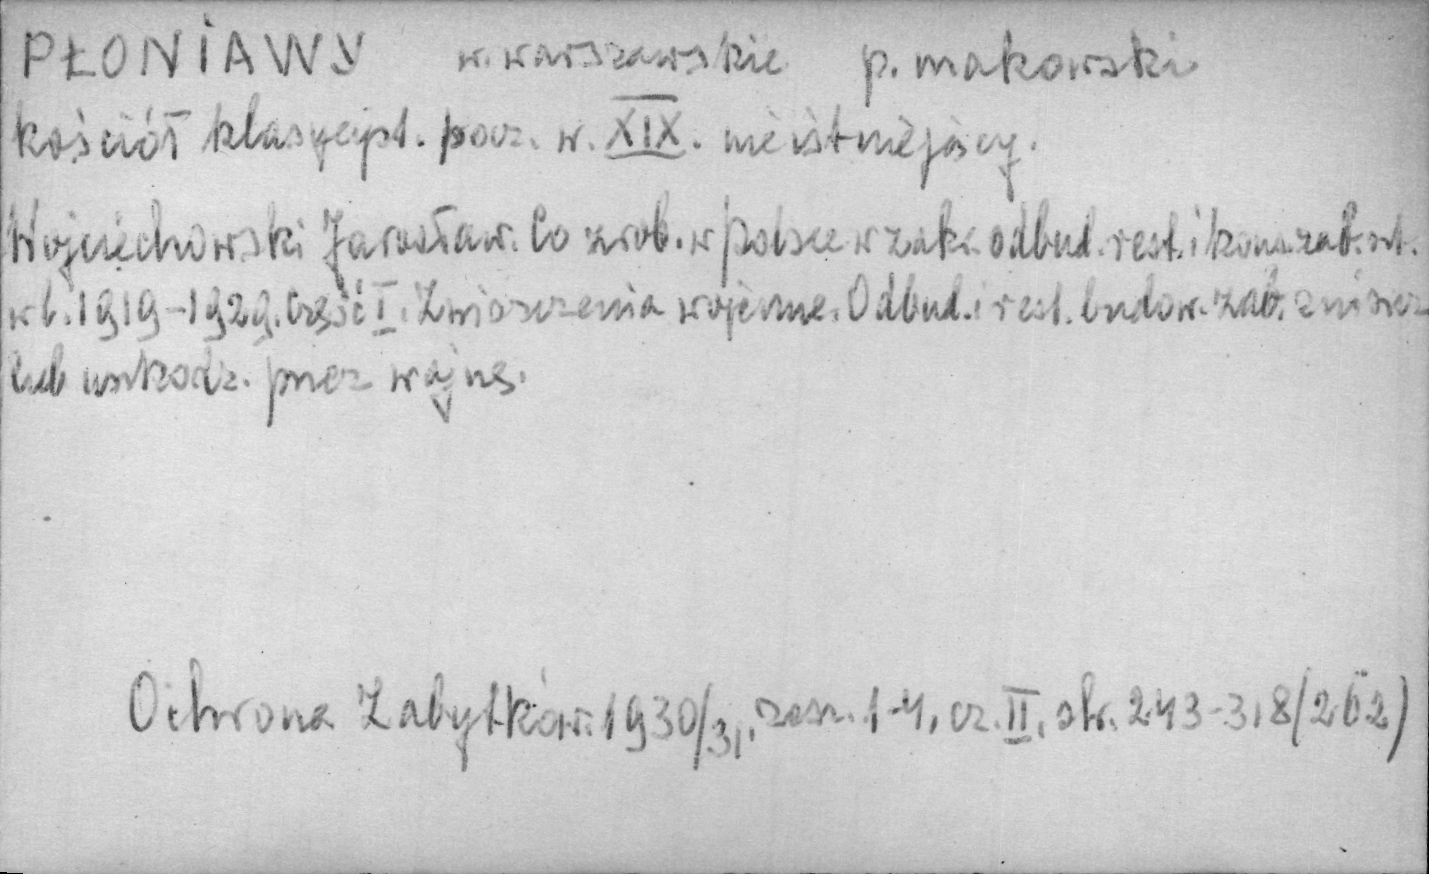 PŁONIAWY w. warszawskie p. makowski
kościół klasycyst. pocz. w. XIX. nieistniejący.
Wojciechowski Jarosław. Co zrob. w Polsce w zakr. odbud. rest. i kons. zab. szt.
w l. 1919-1929. Część I. Zniszczenia wojenne. Odbud. i rest. budow. zab. zniszcz
lub uszkodz. przez wojnę.
Ochrona Zabytków. 1930/31, zesz. 1-4, cz. II, str. 243-318 (262)